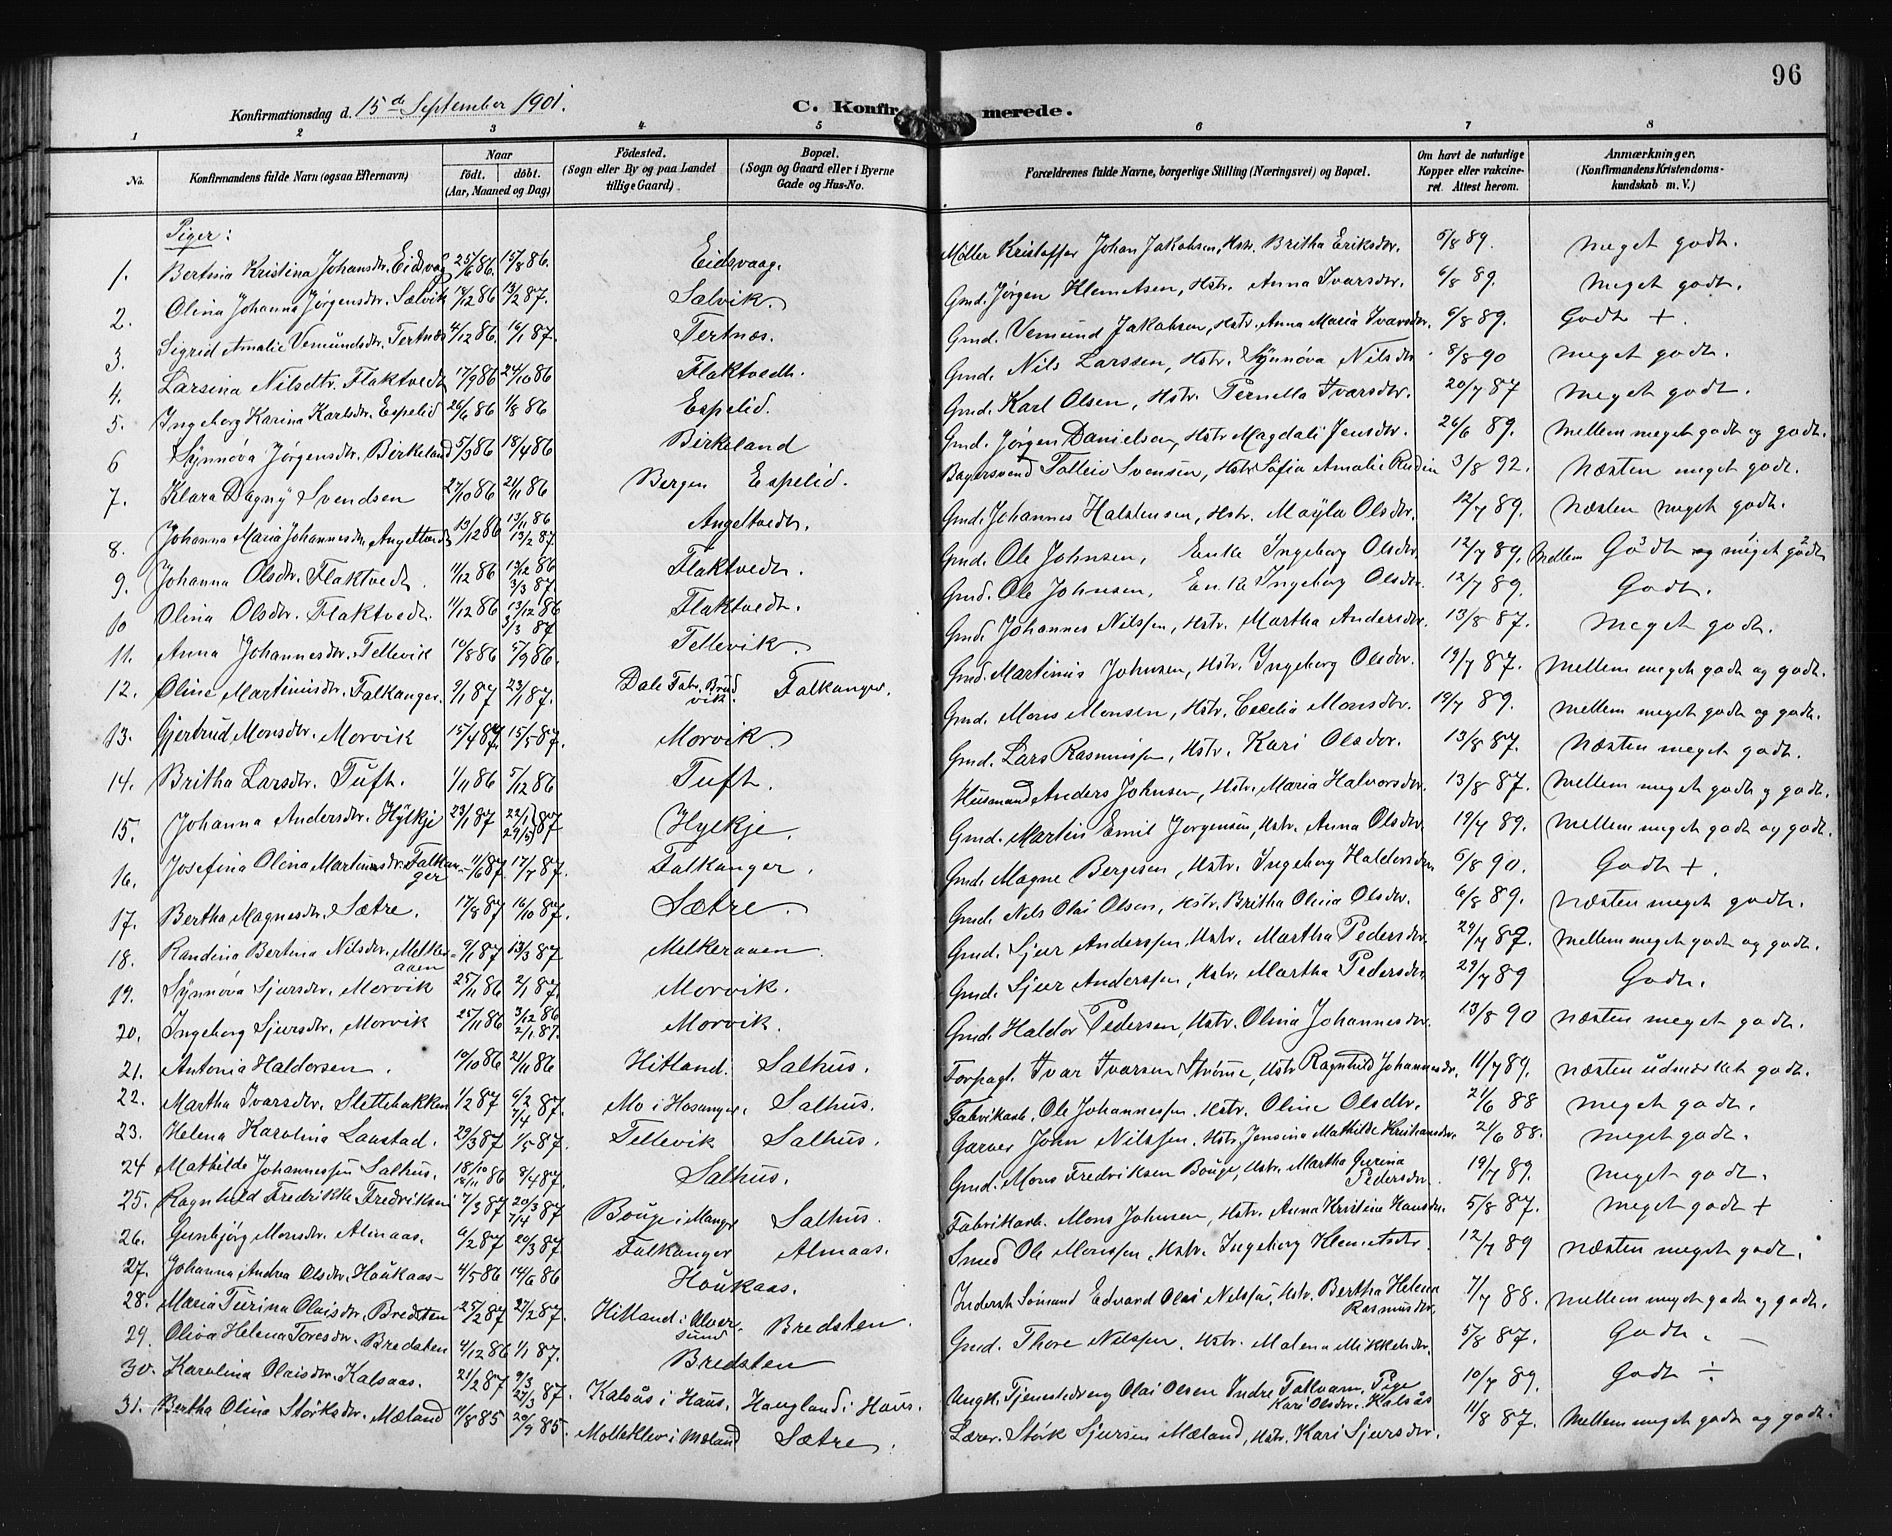 96
Konfirmationsdag d. 15de September 1901.
C. Konfirmerede.
1 2 3 4 5 6 7 8
No. Konfirmandens fulde Navn (ogsaa Efternavn) Naar født, døbt. (Aar, Maaned og Dag) Fødested. (Sogn eller By og paa Landet tillige Gaard). Bopæl. (Sogn og Gaard eller i Byerne Gade og Hus-No. Forældrenes fulde Navne, borgerlige Stilling (Næringsvei) og Bopæl. Om havt de naturlige Kopper eller vakcineret. Attest herom. Anmærkninger. (Konfirmandens Kristendomskundskab m. V.)
Piger:
1. Bertina Kristina Johansdtr. Eidsvaag 25/6 86 15/8 86. Eidsvaag. Møller Kristoffer Johan Jakobsen, Hstr. Britha Eriksdtr. 6/8 89. Meget godt.
2. Olina Johanna Jørgensdtr. Sælvik 18/12 86 13/2 87. Sælvik. Gmd. Jørgen Klemetsen, Hstr. Anna Ivarsdtr. 6/8 89. Meget godt.
3. Sigrid Amalie Vemundsdtr. Tertnæs 4/12 86 16/1 87. Tertnæs. Gmd. Vemund Jakobsen, Hstr. Anna Maria Ivarsdtr. 6/8 89. Godt +.
4. Larsina Nilsdtr. Flaktvedt 17/9 86 24/10 86 Flaktvedt. Gmd. Nils Larssen, Hstr. Synnøva Nilsdtr. 8/8 90 Meget godt.
5. Ingeborg Karina Karlsdtr. Espelid 26/6 86 1/8 86 Espelid. Gmd. Karl Olsen, Hstr. Pernella Ivarsdtr. 20/7 87 Meget godt.
6 Synnøva Jørgensdtr. Birkeland 5/3 86 18/4 86 Birkeland Gmd. Jørgen Danielsen, Hstr. Magdali Jensdtr. 26/6 89. Mellem meget godt og godt.
7. Klara Dagny Svendsen 27/10 86 21/11 86 Bergen Espelid. Bagersvend Tolleiv Svensen, Hstr. Sofia Amalie 3/8 92. Næsten meget godt.
8. Johanna Maria Johannesdtr. Angeltvedt 13/12 86 13/2 87. Angeltvedt. Gmd. Johannes Halstensen, Hstr. Mayla Olsdtr. 12/7 89. Næsten meget godt.
9. Johanna Olsdtr. Flaktvedt. 11/12 86 13/12 86 3/3 87 Flaktvedt. Gmd. Ole Johnsen, Enke Ingeborg Olsdtr. 12/7 89. Mellem Godt og meget godt
10 Olina Olsdtr. Flaktvedt. 11/12 86 13/12 86 3/3 87 Flaktvedt. Gmd. Ole Johnsen, Enke Ingeborg Olsdtr. 12/7 89. Godt.
11. Anna Johannesdtr. Tellevik 10/8 86 5/9 86. Tellevik. Gmd. Johannes Nilssen, Hstr. Martha Andersdtr. 13/8 87. Meget godt.
12. Oline Martinusdtr. Falkanger. 9/1 87 23/1 87. Dale Fabr. Brudvik. Falkanger. Gmd. Martinus Johnsen, Hstr. Ingeborg Olsdtr. 19/7 87. Mellem meget godt og godt.
13. Gjertrud Monsdtr. Morvik 15/4 87 15/5 87. Morvik. Gmd. Mons Monsen, Hstr. Cecelia Monsdtr. 19/7 89. Mellem meget godt og godt.
14. Britha Larsdtr. Tuft. 1/11 86 5/12 86 Tuft. Gmd. Lars Rasmussen, Hstr. Kari Olsdtr. 13/8 87. Næsten meget godt.
15. Johanna Andersdtr. Hylkje 23/1 87 22/1 29/5 87 Hylkje. Husmand Anders Johnsen, Hstr. Maria Halvorsdtr. 13/8 87. Mellem meget godt og godt.
16. Josefina Olina Martinsdtr. Falkanger 11/6 87 17/7 87. Falkanger. Gmd. Martin Emil Jørgensen, Hstr. Anna Olsdtr. 19/7 89. Mellem meget godt og godt.
17. Bertha Magnesdtr. Sætre. 17/8 87 16/10 87. Sætre. Gmd. Magne Bergesen, Hstr. Ingeborg Haldorsdtr. 6/8 90. Godt +.
18. Randina Bertina Nilsdtr. Melkeraaen 9/1 87 13/3 87 Melkeraaen. Gmd. Nils Olai Olsen, Hstr. Britha Olina Olsdtr. 6/8 89. Næsten meget godt.
19. Synnøva Sjursdtr. Morvik 25/11 86 2/1 87. Morvik. Gmd. Sjur Anderssen, Hstr. Martha Pedersdtr. 29/7 87. Mellem meget godt og godt.
20. Ingeborg Sjursdtr. Morvik 25/11 86 3/12 86 2/1 87. Morvik. Gmd. Sjur Anderssen, Hstr. Martha Pedersdtr. 29/7 89 Godt.
21. Antonia Haldorsen. 10/10 86 21/11 86 Hitland. Salhus. Gmd. Haldor Pedersen, Hstr. Olina Johannesdtr. 13/8 90 Næsten meget godt.
22. Martha Ivarsdtr. Slettebakken 1/2 87 6/2 7/4 87. Mo i Hosanger. Salhus. Forpagt. Ivar Ivarsen Strømme, Hstr. Ragnhild Johannesdtr. 11/7 89. Næsten udmerket godt.
23. Helena Karolina Laastad. 29/3 87 1/5 87. Tellevik Salhus. Fabrikarb. Ole Johannessen. Hstr. Oline Olsdtr. 21/6 88 Meget godt.
24 Mathilde Johannessen Salhus. 18/10 86 8/4 87. Salhus. Garver John Nilssen. Hstr. Jensina Mathilde Kristiansdtr. 21/6 88. Meget godt.
25. Ragnhild Fredrikke Fredriksen 7/3 87 20/3 7/4 87 Bouge i Manger Salhus. Gmd. Mons Fredriksen Bouge, Hstr. Martha Gurina Pedersdtr. 19/7 89. Meget godt.
26. Gunbjørg Monsdtr. Almaas. 6/2 87 20/3 87 Falkanger Almaas. Fabrikarb. Mons Johnsen, Hstr. Anna Kristine Hansdtr. 5/8 87. Meget godt +
27. Johanna Andrea Olsdtr. Houkaas 4/5 86 14/6 86 Houkaas. Smed Ole Monssen, Hstr. Ingeborg Klemetsdtr. 12/7 89 Næsten meget godt.
28. Maria Turina Olaisdtr. Bredsten 25/1 87 27/2 87. Hitland i Alversund Bredsten. Inderst Sømand Edvard Olai Nilssen, Hstr. Bertha Helena Rasmusdtr. 7/7 88. Mellem meget godt og godt.
29. Oliva Helena Toresdtr. Bredsten 4/12 86 1/1 87. Bredsten Gmd. Thore Nilssen, Hstr. Malena Mikkelsdtr. 5/8 87. Godt. –
30. Karolina Olaisdtr. Kalsaas. 21/2 87 9/3 27/3 87. Kalsås i Haus. Haugland i Haus. Ungk. Tjenestedreng Olai Olsen Indre Toftvam, Pige Kari Olsdtr. Kalsås 10/7 89. Godt ÷
31. Bertha Olina Størksdtr. Mæland 11/8 85 20/9 85. Molleklev i Mæland Sætre. Lærer. Størk Sjursen Mæland, Hstr. Kari Sjursdtr. 11/8 87. Mellem meget godt og godt.